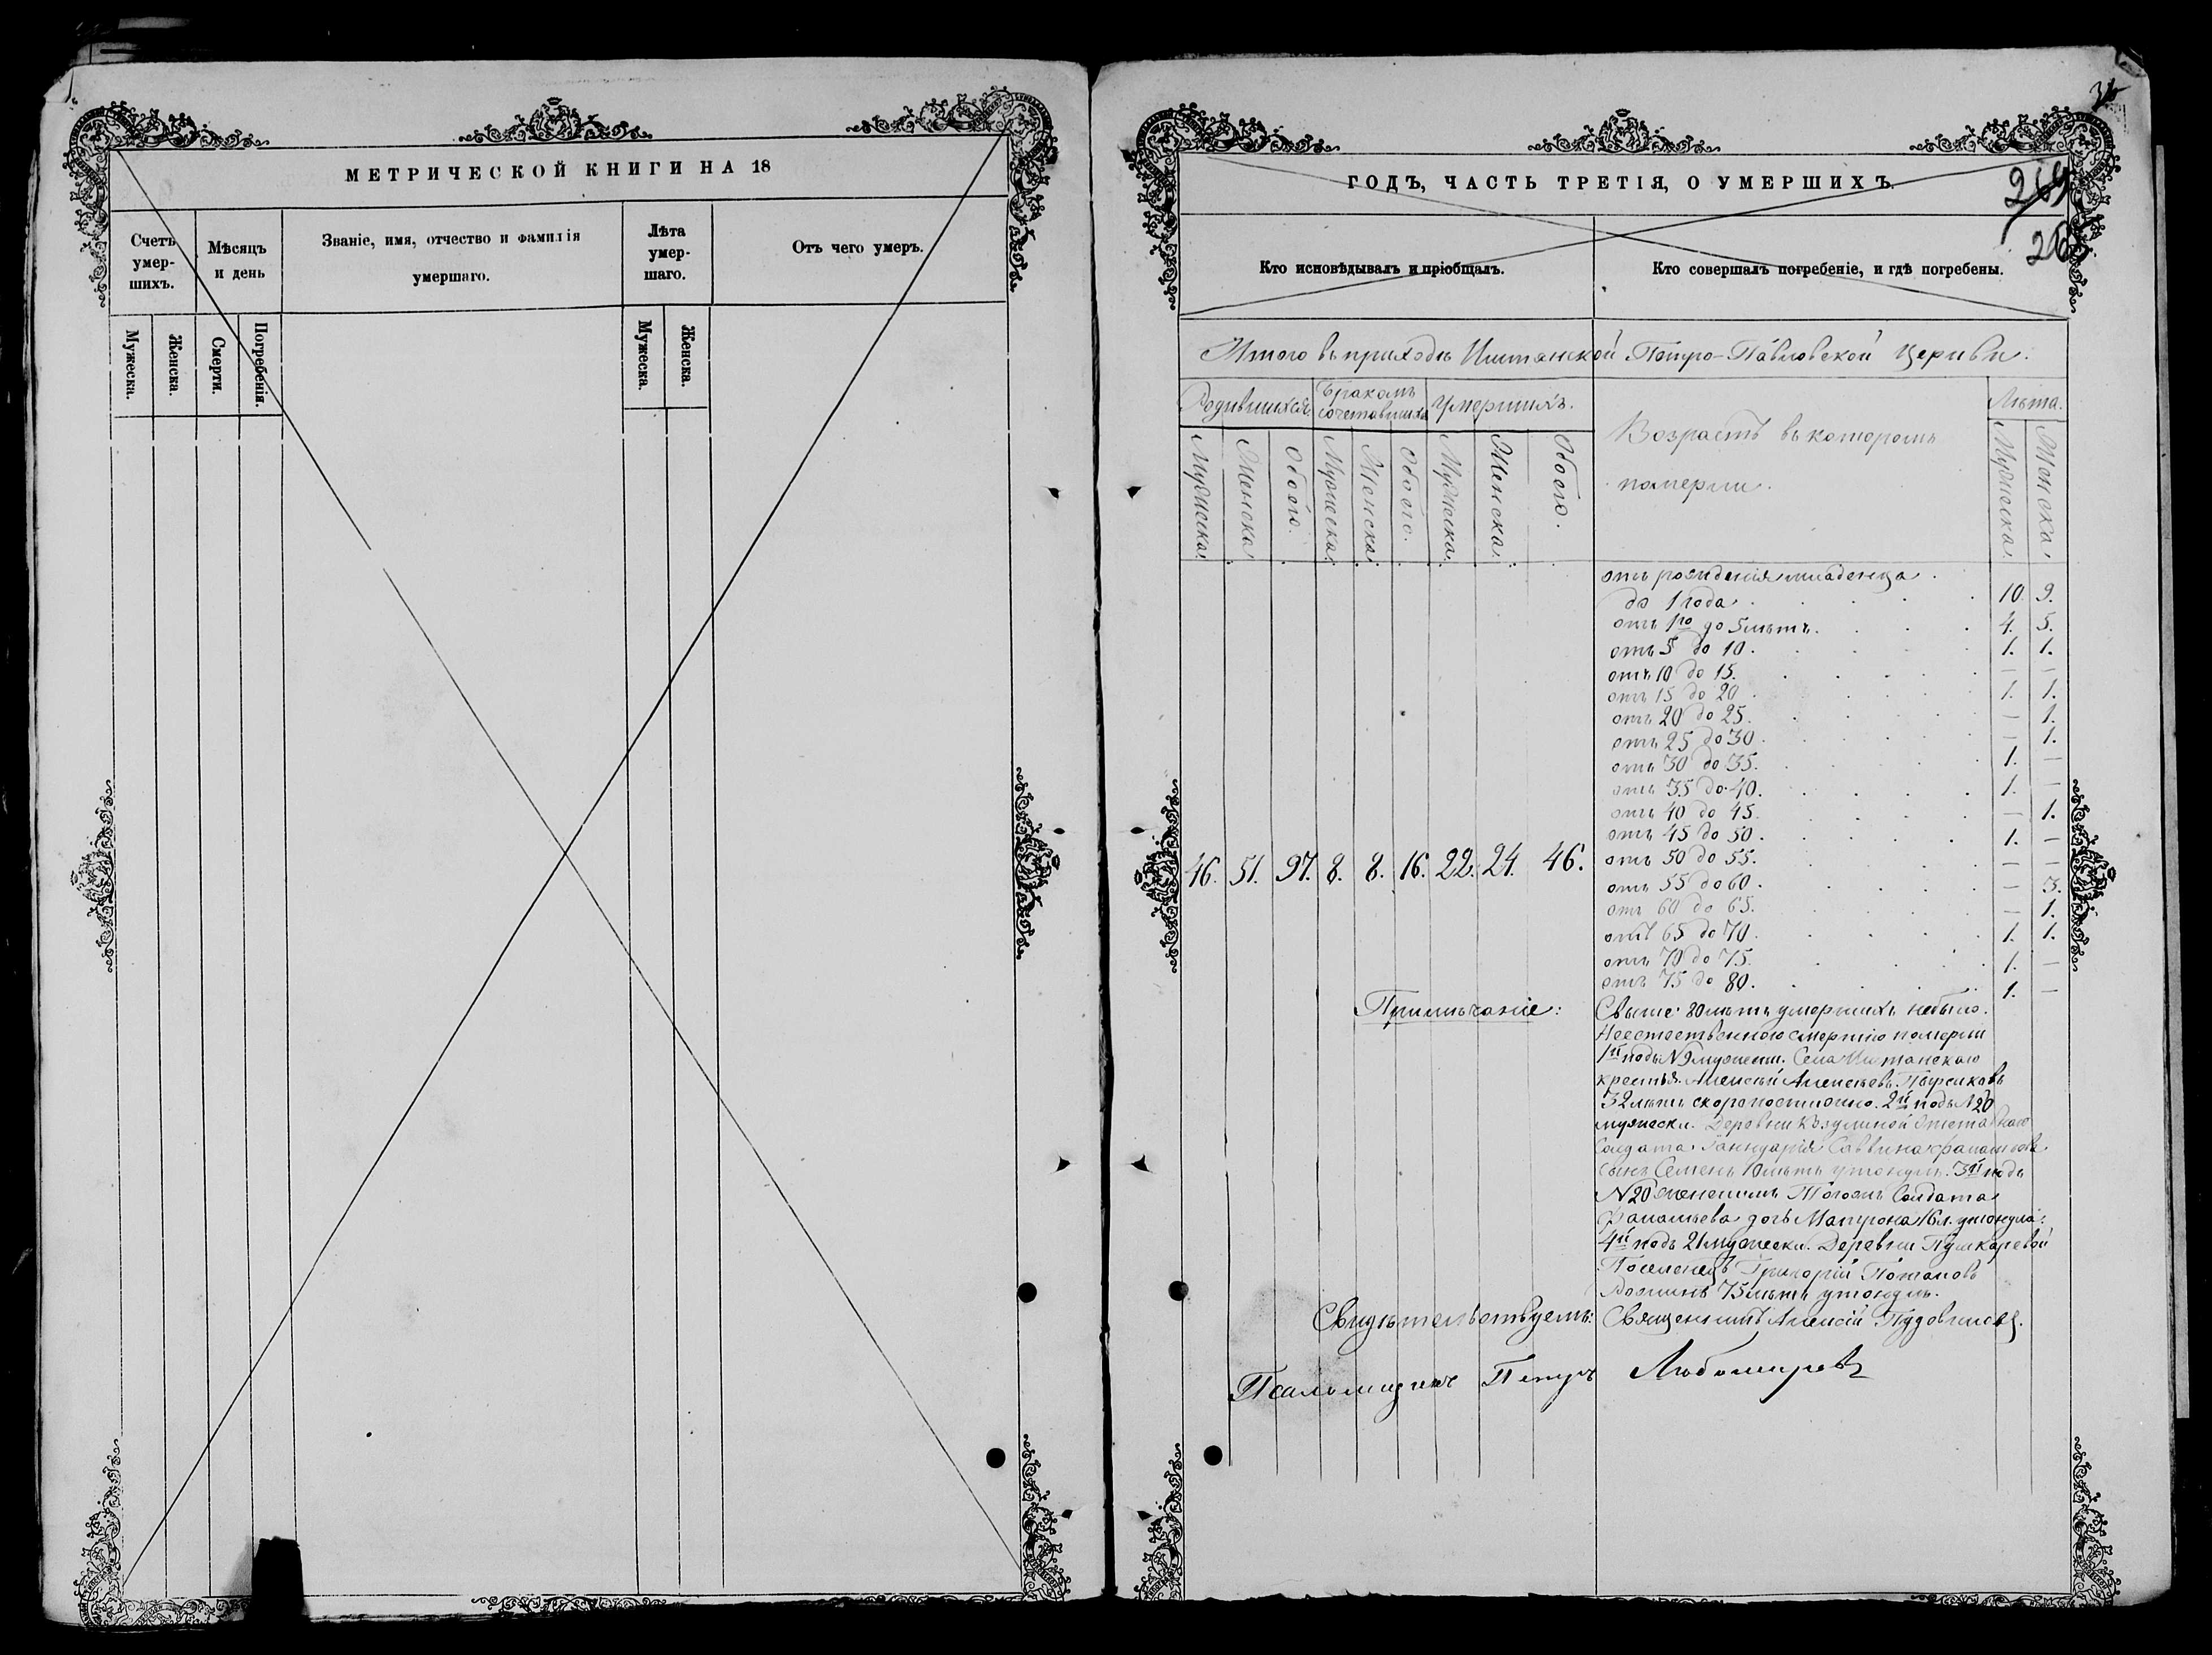 МЕТРИЧЕСКОЙ КНИГИ НА 18
Счетъ умер-шихъ.
Мѣсяцъ и день
Званіе, имя, отчество и фамилія умершаго.
Лѣта умер-шаго.
Отъ чего умеръ.
Мужеска.
Женска.
Смерти.
Погребенія.
Мужеска.
Женска.
ГОДЪ, ЧАСТЬ ТРЕТІЯ, О УМЕРШИХЪ.
269
Кто исповѣдывалъ и пріобщалъ.
Кто совершалъ погребеніе, и гдѣ погребены.
Итого въ приходѣ Иштанской Петро-Павловской Церкви.
Родившихся
Бракомъ сочетавшихся
Умершихъ.
Возрастъ въ которомъ
померли.
Лѣта.
Мужеска.
Женска
Обоего.
Мужеска.
Женска
Обоего.
Мужеска.
Женска.
Обоего.
Мужеска.
Женска.
отъ рожденія младенца
до 1 года. 10. 9.
отъ 1го до 5 лѣтъ. 4. 5.
отъ 5 до 10. 1. 1.
отъ 10 до 15. — —
отъ 15 до 20. 1. 1.
отъ 20 до 25. — 1.
отъ 25 до 30. — 1.
отъ 30 до 35. 1. —
отъ 35 до 40. 1. —
отъ 40 до 45. — 1.
отъ 45 до 50. 1. —
46. 51. 97. 8. 8. 16. 22. 24. 46.
отъ 50 до 55. — —
отъ 55 до 60. — 3.
отъ 60 до 65. — 1.
отъ 65 до 70. 1. 1.
отъ 70 до 75. 1. —
отъ 75 до 80. 1. —
Примѣчаніе: Свыше 80 лѣтъ умершихъ небыло.
Неестественною смертію померли
1й подъ N9 мужеск. Села Иштанскаго
крестья. Алексѣй Алексѣевъ
32 лѣтъ скоропостижно. 2й подъ N20
мужески. Деревни
Солдата Саввина
сынъ Семенъ 10 лѣтъ утонулъ. 3й подъ
N20 женскимъ Тогожъ Солдата
дочь Матрона 16 л. утонула.
4й подъ 21 мужески. Деревни Пушкаревой
Поселенецъ Григорій Потаповъ
75 лѣтъ утонулъ.
Свидѣтельствуемъ: Священникъ Алексій
Псаломщикъ Петръ Любомировъ